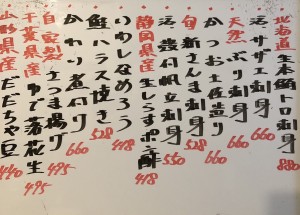 北海道生本鮪トロ刺身 880
活サザエ刺身 660
天然ぶり刺身 660
かつお土佐造り 660
旬新さんま刺身 528
活殻付帆立刺身 550
静岡県産生しらすポン酢 418
いわしなめろう 418
鮭ハラス焼き 528
煮付け
自家製さつま揚げ 495
千葉県産ゆで落花生 495
山形県産だだちゃ豆 440